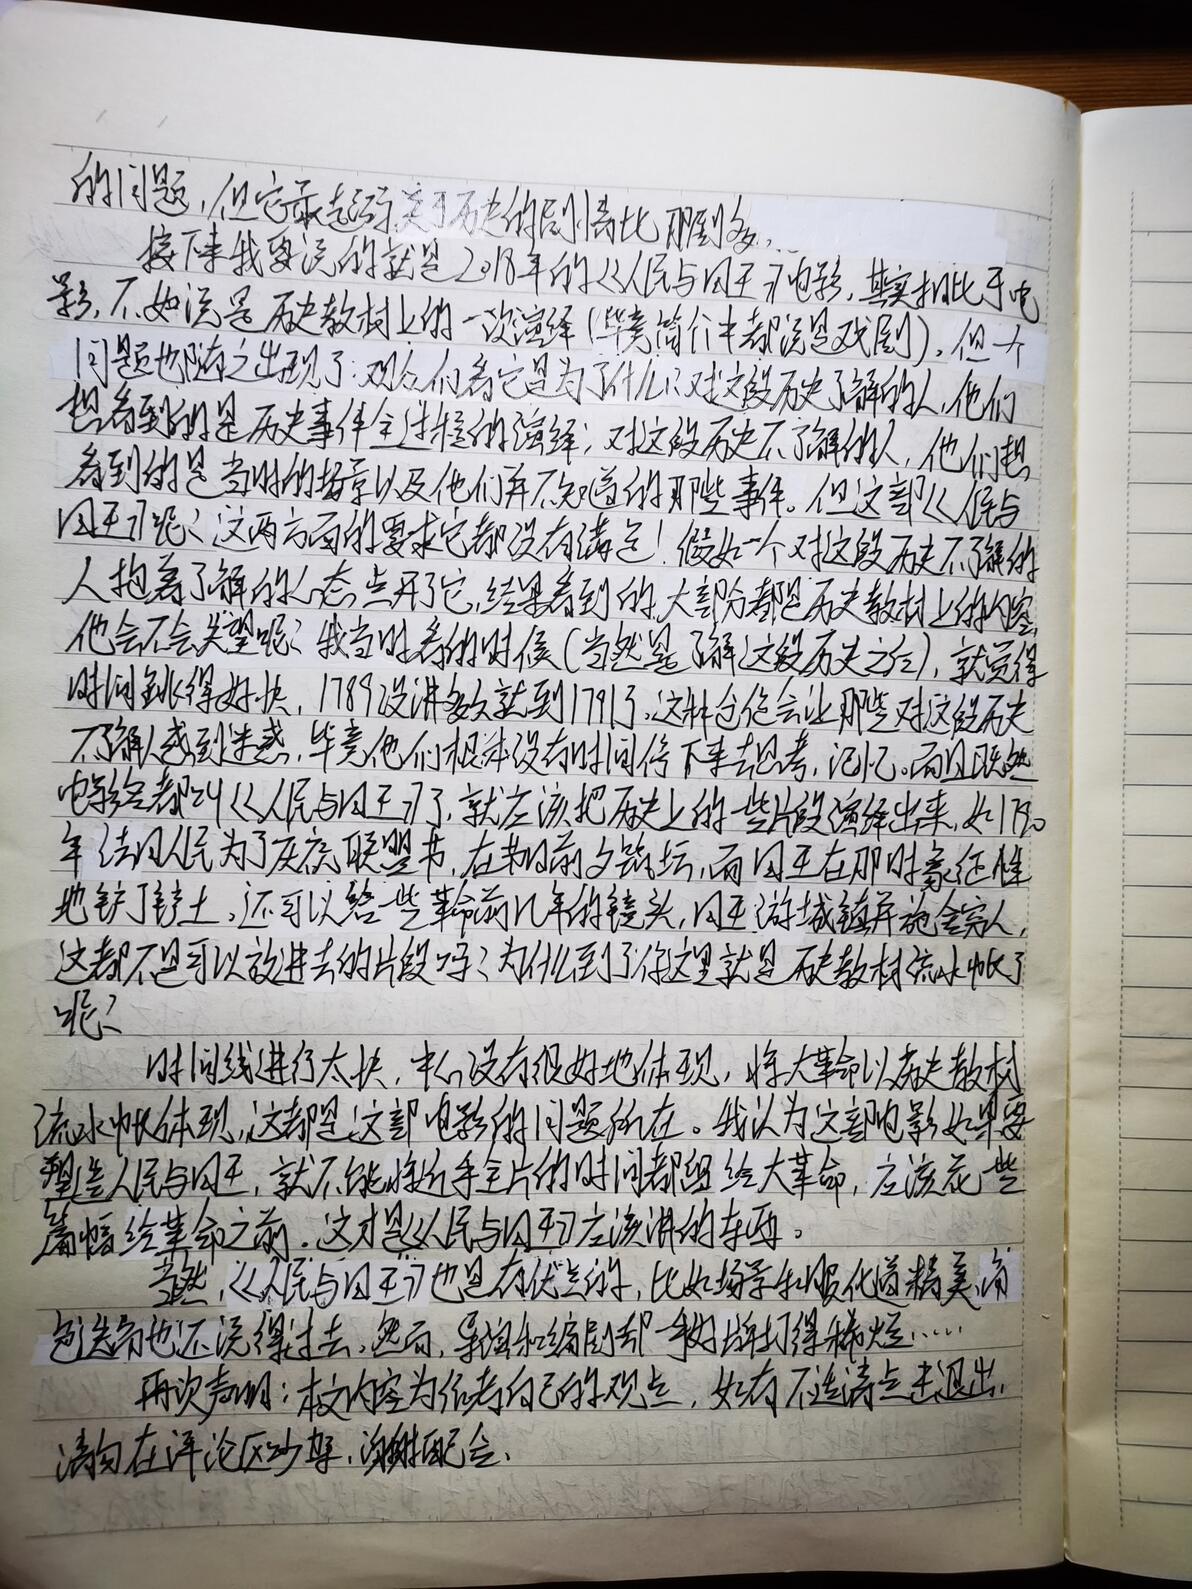 的问题，但它最起码关于历史的剧情比那剧多。
接下来我要说的就是2018年的《人民与国王》电影，其实相比于电
影，不如说是历史教材上的一次演绎（毕竟简介中都说是戏剧）。但一个
问题也随之出现了：观众们看它是为了什么？对这段历史了解的人，他们
想看到的是历史事件全过程的演绎；对这段历史不了解的人，他们想
看到的是当时的场景以及他们并不知道的那些事件。但这部《人民与
国王》呢？这两方面的要求它都没有满足！假如一个对这段历史不了解的
人抱着了解的心态点开了它，结果看到的大部分都是历史教材上的内容，
他会不会失望呢？我当时看的时候（当然是了解这段历史之后），就觉得
时间跳得好快，1789没讲多久就到1791了。这种仓促会让那些对这段历史
不了解人感到迷惑，毕竟他们根本没有时间停下来去思考，记忆。而且既然
电影名都叫《人民与国王》了，就应该把历史上的一些片段演绎出来，如1790
年法国人民为了庆祝联盟节，在节日前夕筑坛，而国王在那时象征性
地铲了铲土。还可以给一些革命前几年的镜头，国王游城镇并施舍穷人，
这都不是可以放进去的片段吗？为什么到了你这里就是历史教材流水帐了
呢？
时间线进行太快，中心没有很好地体现，将大革命以历史教材
流水帐体现，这都是这部电影的问题所在。我认为这部电影如果要
塑造人民与国王，就不能将近乎全片的时间都留给大革命，应该花一些
篇幅给革命之前。这才是《人民与国王》应该讲的东西。
当然，《人民与国王》也是有优点的，比如场景和服化道精美，角
色选角也还说得过去。然而，导演和编剧却一手好牌打得稀烂……
再次声明：本文内容为作者自己的观点，如有不适请点击退出，
请勿在评论区吵架，谢谢配合。